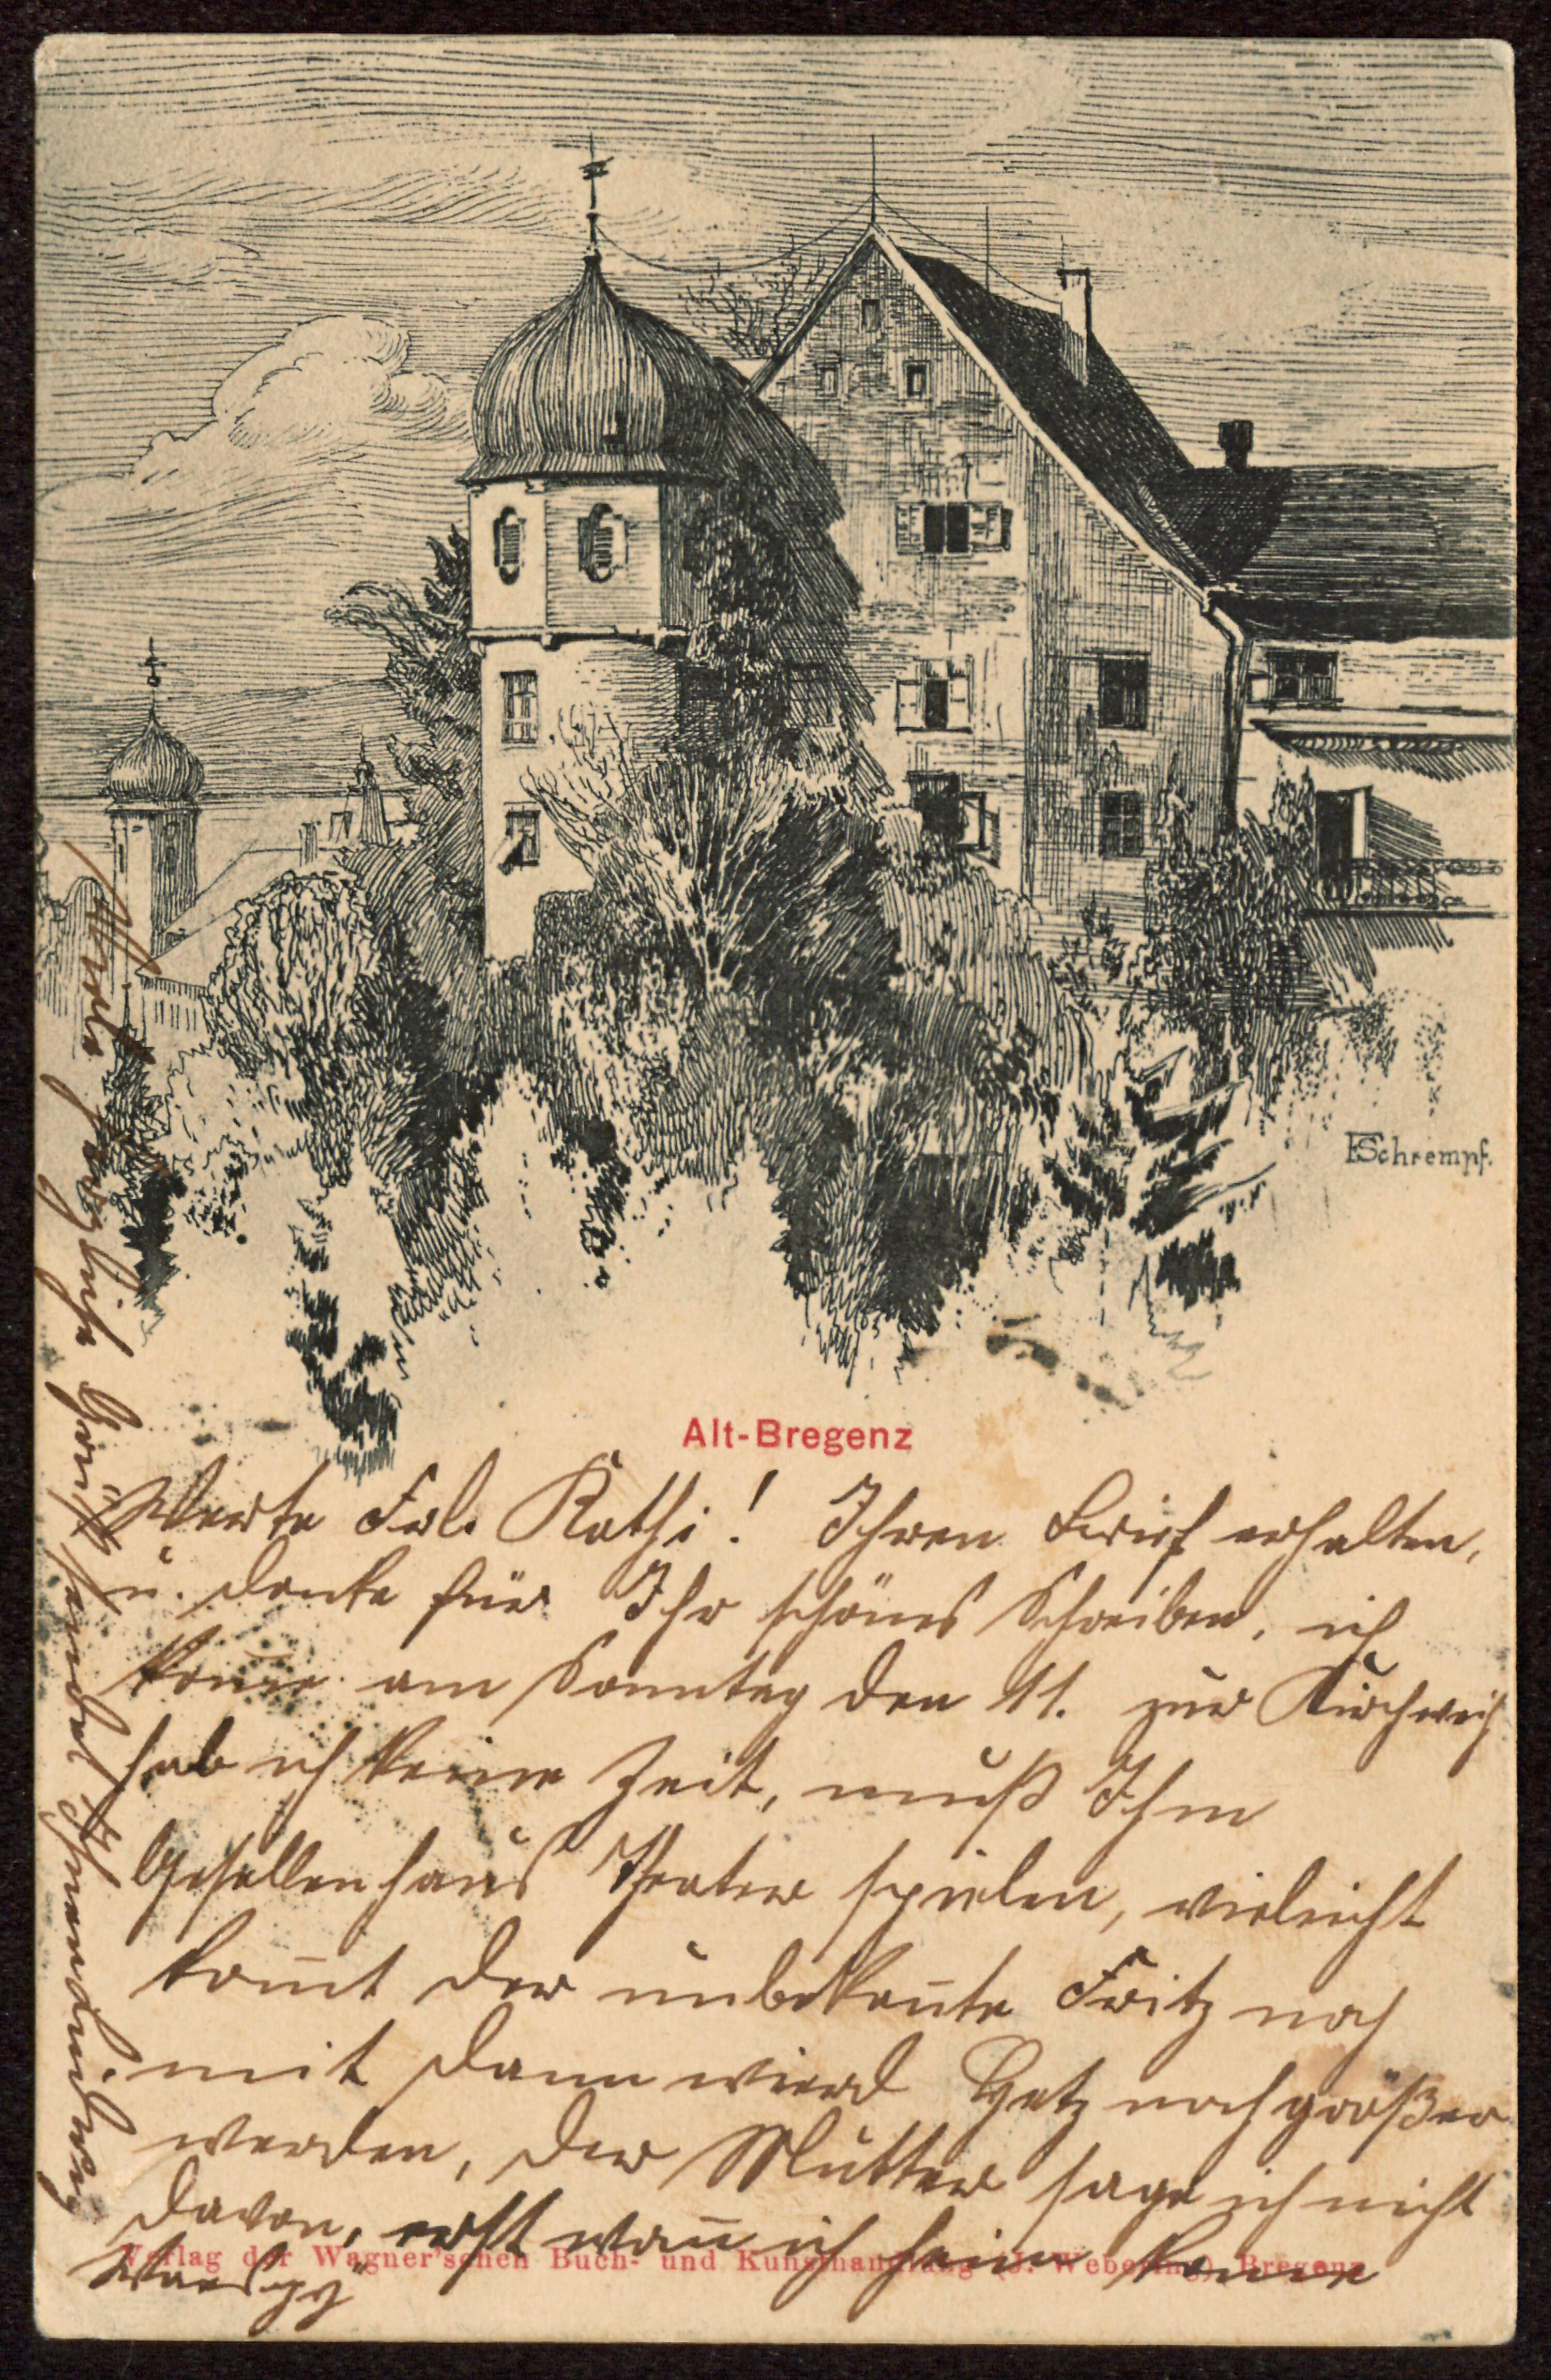 FSchrempf.
Alt-Bregenz
Werte Frl. Kathi! Ihren Brief erhalten,
u. danke für Ihr schönes Schreiben, ich
kome am Sonntag den 11. zur Kirchweih
hab ich keine Zeit, muß Ihm
Gesellenhaus Theater spielen, vieleicht
kom̄t der unbekan̄te Fritz noch
mit dann wierd Hetz noch größer
werden, der Mutter sage ich nicht
davon, erst wan̄ ich heim kome
Verlag der Wagner'schen Buch- und Kunsthandlung (J. Weberling), Bregenz
Viele herzliche Grüße sendet Ihnen